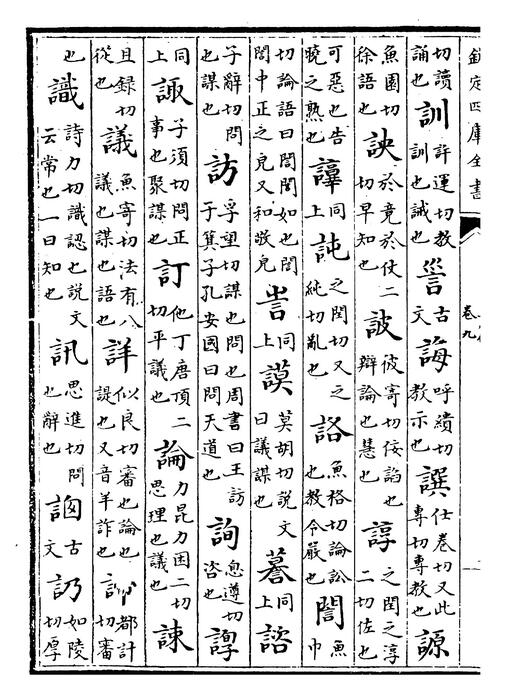 欽定四庫全書　卷九
切讀誦也訓許運切教訓也誡也古文誨呼繢切教示也譔仕卷切又此專切專教也謜
魚園切徐語也詇於竟於仗二切早知也詖彼寄切佞諂也辯論也慧也諄之閏之淳二切佐也
可惡也告曉之熟也同上訰之閏切又之純切亂也詻魚格切論訟也教令嚴也誾魚巾
切論語曰誾誾如也誾誾中正之皃又和敬皃同上謨莫胡切說文曰議謀也謩同上諮
子辭切問也謀也訪孚望切謀也問也周書曰王訪于箕子孔安國曰問天道也詢息遵切咨也
同上諏子須切問正事也聚謀也訂他丁唐頂二切平議也論力昆力困二切思理也議也諫
且録切從也議魚寄切法有八議也謀也語也詳似良切審也論也諟也又音羊詐也都計切審
也識詩力切識認也說文云常也一曰知也訊思進切問也辭也古文訒如陵切厚